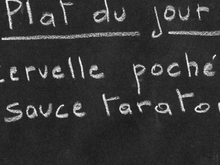 Plat du jour
cervelle poché
sauce tarato